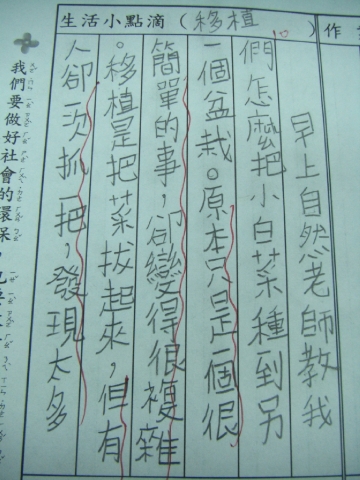 生活小點滴（移植）
作
早上自然老師教我
們怎麼把小白菜種到另
一個盆栽。原本只是一個很
簡單的事，卻變得很複雜
。移植是把菜拔起來，但有
人卻一次抓一把，發現太多
我們要做好社會的環保，